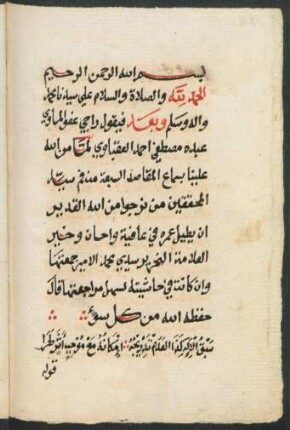 بسم الله الرحمن الرحيم
الحمد لله والصلاة والسلام على سيدنا محمد
واله وسلم وبعد فيقول راجي عفو المساوي
عبده مصطفى احمد العقباوي لما من الله
علينا بسماع المقاصد السبعة من في سيد
المحققين من نرجوا من الله القدير
ان يطيل عمره في عافية واحسان وخير
العلامة النحرير سيدي محمد الامير جمعتها
وان كانت في حاشيته لسهل مراجعتها قال
حفظه الله من كل سوء
سبق الادراك
قوله